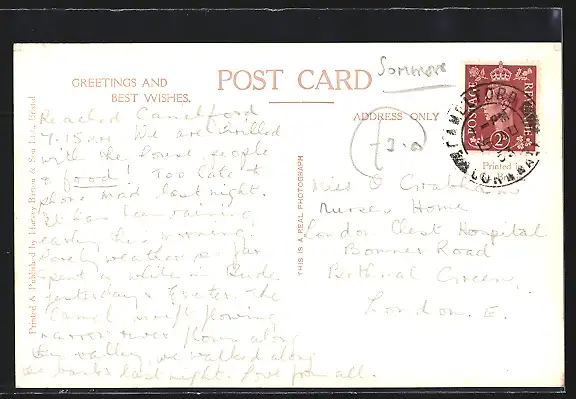 GREETINGS AND
BEST WISHES.
POST CARD
ADDRESS ONLY
Printed & Published by Harvey Barton & Son Ltd., Bristol
THIS IS A REAL PHOTOGRAPH
POSTAGE
REVENUE
CAMELFORD
CORNWALL
Reached Camelford
7.15 p.m. We are thrilled
with the house, people
& food! Too late to
phone Mad last night.
It has been raining
early this morning,
lovely weather so far
spent a while in Bude
yesterday & Exeter. The
Camel swift flowing
narrow river flows along
the valley, we walked along
its banks last night. Love from all.
Miss O
Nurses Home
London Chest Hospital
Bonner Road
Bethnal Green,
London. E.